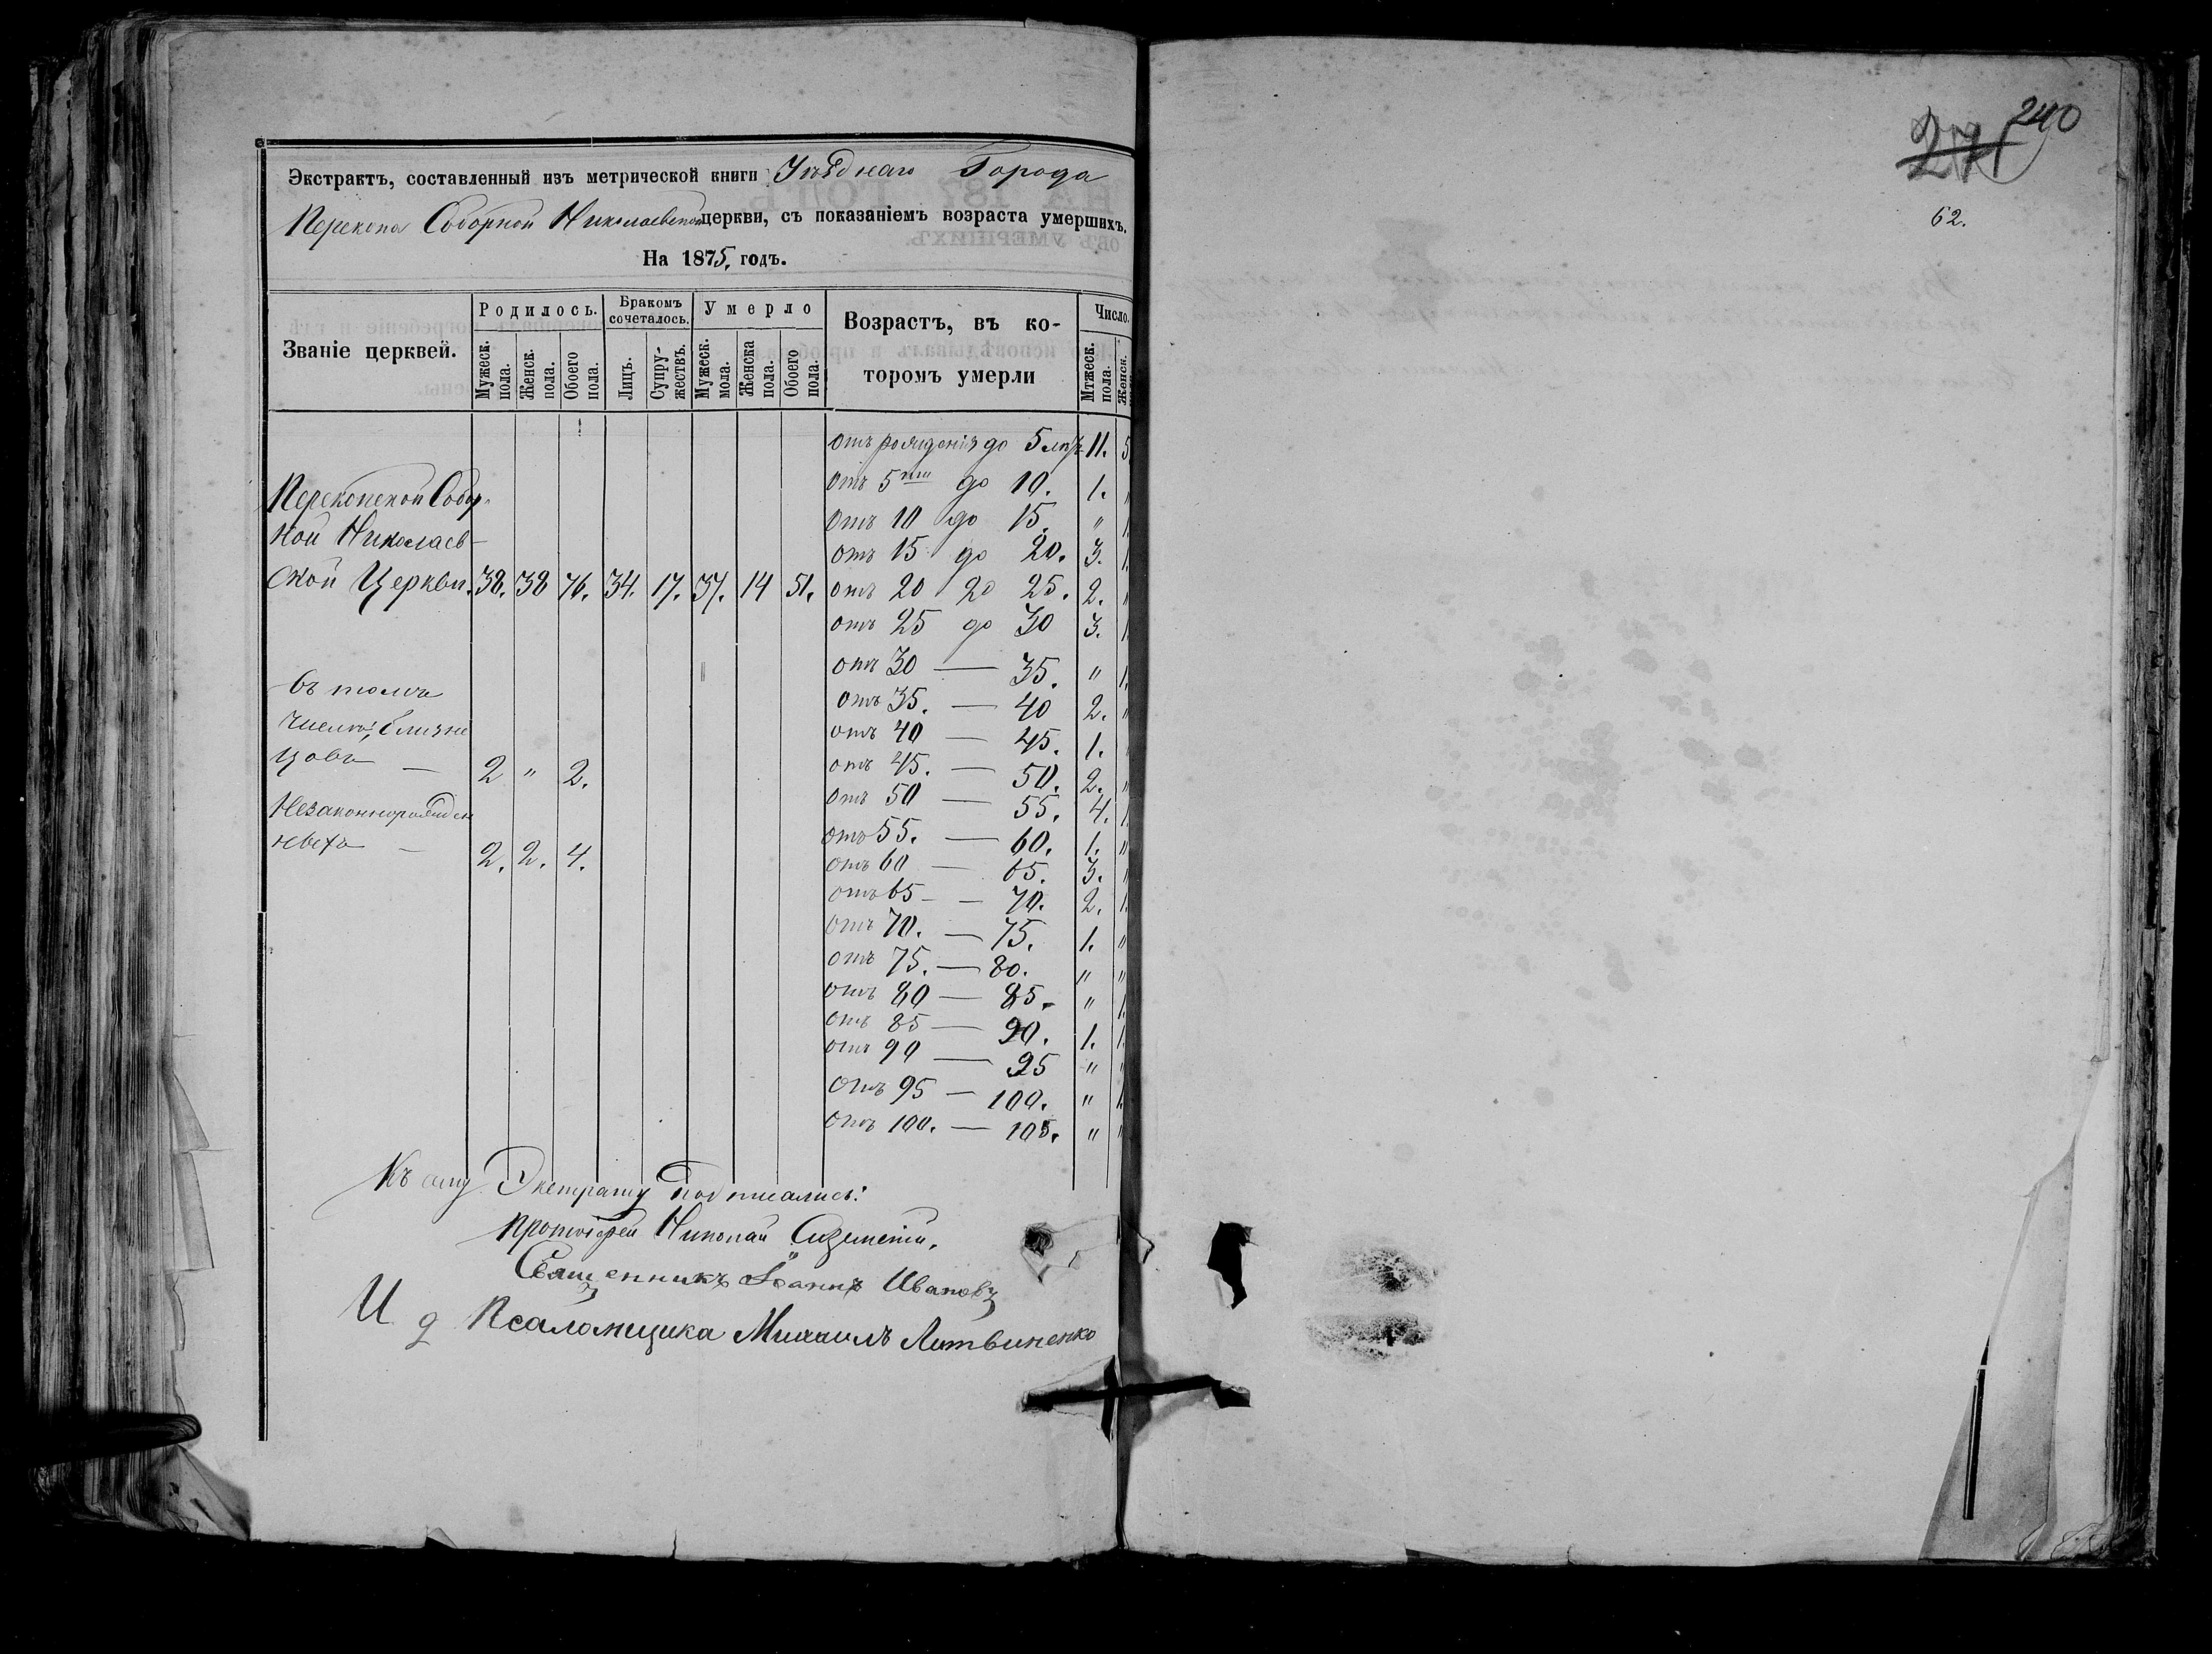 Экстрактъ, составленный изъ метрической книги Уѣзднаго Города
Перекопа Соборной Николаевской церкви, съ показаніемъ возраста умершихъ.
На 1875, годъ.
Званіе церквей.
Родилось.
Мужеск. пола.
Женск. пола.
Обоего пола.
Бракомъ сочеталось.
Лицъ.
Супружествъ.
Умерло
Мужеск. мола.
Женска пола.
Обоего пола.
Возрастъ, въ ко-
торомъ умерли
Число.
Мтжеск. пола.
Женск.
отъ рожденія до 5 лѣтъ 11. 5
отъ 5ти до 10. 1. "
Перекопской Собор-
отъ 10 до 15. " 1.
ной Николаев-
отъ 15 до 20. 3. 1.
ской Церкви. 38. 38 76. 34. 17. 37. 14 51. отъ 20 до 25. 2. "
отъ 25 до 30 3. 1.
отъ 30 — 35. " 1.
Въ томъ
отъ 35. — 40 2. "
числѣ, близне
отъ 40 — 45. 1.
цовъ — 2 " 2.
отъ 45. — 50. 2. "
отъ 50 — 55. 4. 1.
Незаконнорожден
отъ 55. — 60. 1. "
ныхъ — 2. 2. 4.
отъ 60 — 65. 3. "
отъ 65 — 70. 2. 1.
отъ 70. — 75. 1. "
отъ 75. — 80. " "
отъ 80 — 85. " 1.
отъ 85 — 90. 1. 1.
отъ 90 — 95 " "
отъ 95 — 100. " 1.
отъ 100. — 105. " "
Къ сему Экстракту подписались:
Протоіерей Николай
Священникъ Іоаннъ Ивановъ
И д Псаломщика Михаилъ Литвиненко
240
271
62.